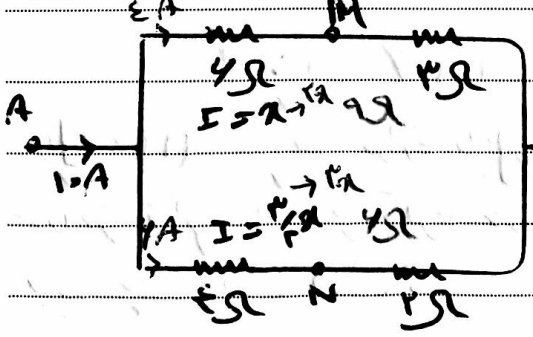 ۴A M
۶Ω ۳Ω
I = x → ۲x ۹Ω
A
۱۰A
→ ۳x
۶A I = ۳/۲ x ۶Ω
۴Ω N ۲Ω